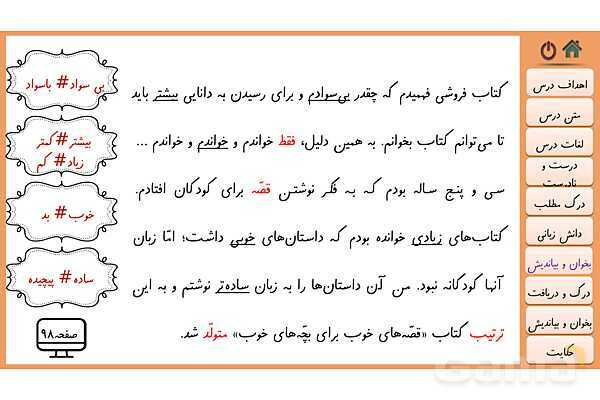 کتاب فروشی فهمیدم که چقدر بی‌سوادم و برای رسیدن به دانایی بیشتر باید
تا می‌توانم کتاب بخوانم. به همین دلیل، فقط خواندم و خواندم و خواندم ...
سی و پنج ساله بودم که به فکر نوشتن قصّه برای کودکان افتادم.
کتاب‌های زیادی خوانده بودم که داستان‌های خوبی داشت؛ امّا زبان
آنها کودکانه نبود. من آن داستان‌ها را به زبان ساده‌تر نوشتم و به این
ترتیب کتاب «قصّه‌های خوب برای بچّه‌های خوب» متولّد شد.
بی سواد# باسواد
بیشتر# کمتر
زیاد# کم
خوب# بد
ساده# پیچیده
صفحه۹۸
اهداف درس
متن درس
لغات درس
درست و
نادرست
درک مطلب
دانش زبانی
بخوان و بیاندیش
درک و دریافت
بخوان و بیاندیش
حکایت
Gama